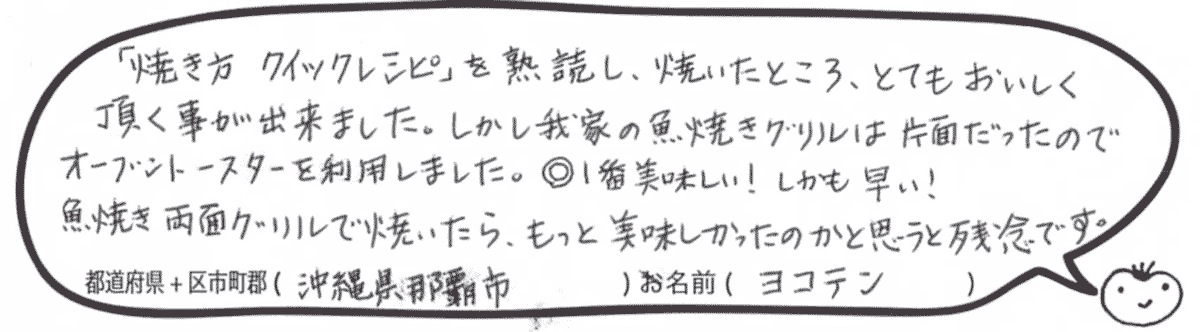 「焼き方 クイックレシピ」を熟読し、焼いたところ、とてもおいしく
頂く事が出来ました。しかし我家の魚焼きグリルは片面だったので
オーブントースターを利用しました。◎1番美味しい！しかも早い！
魚焼き両面グリルで焼いたら、もっと美味しかったのかと思うと残念です。
都道府県+区市町郡( 沖縄県那覇市 )お名前( ヨコテン )